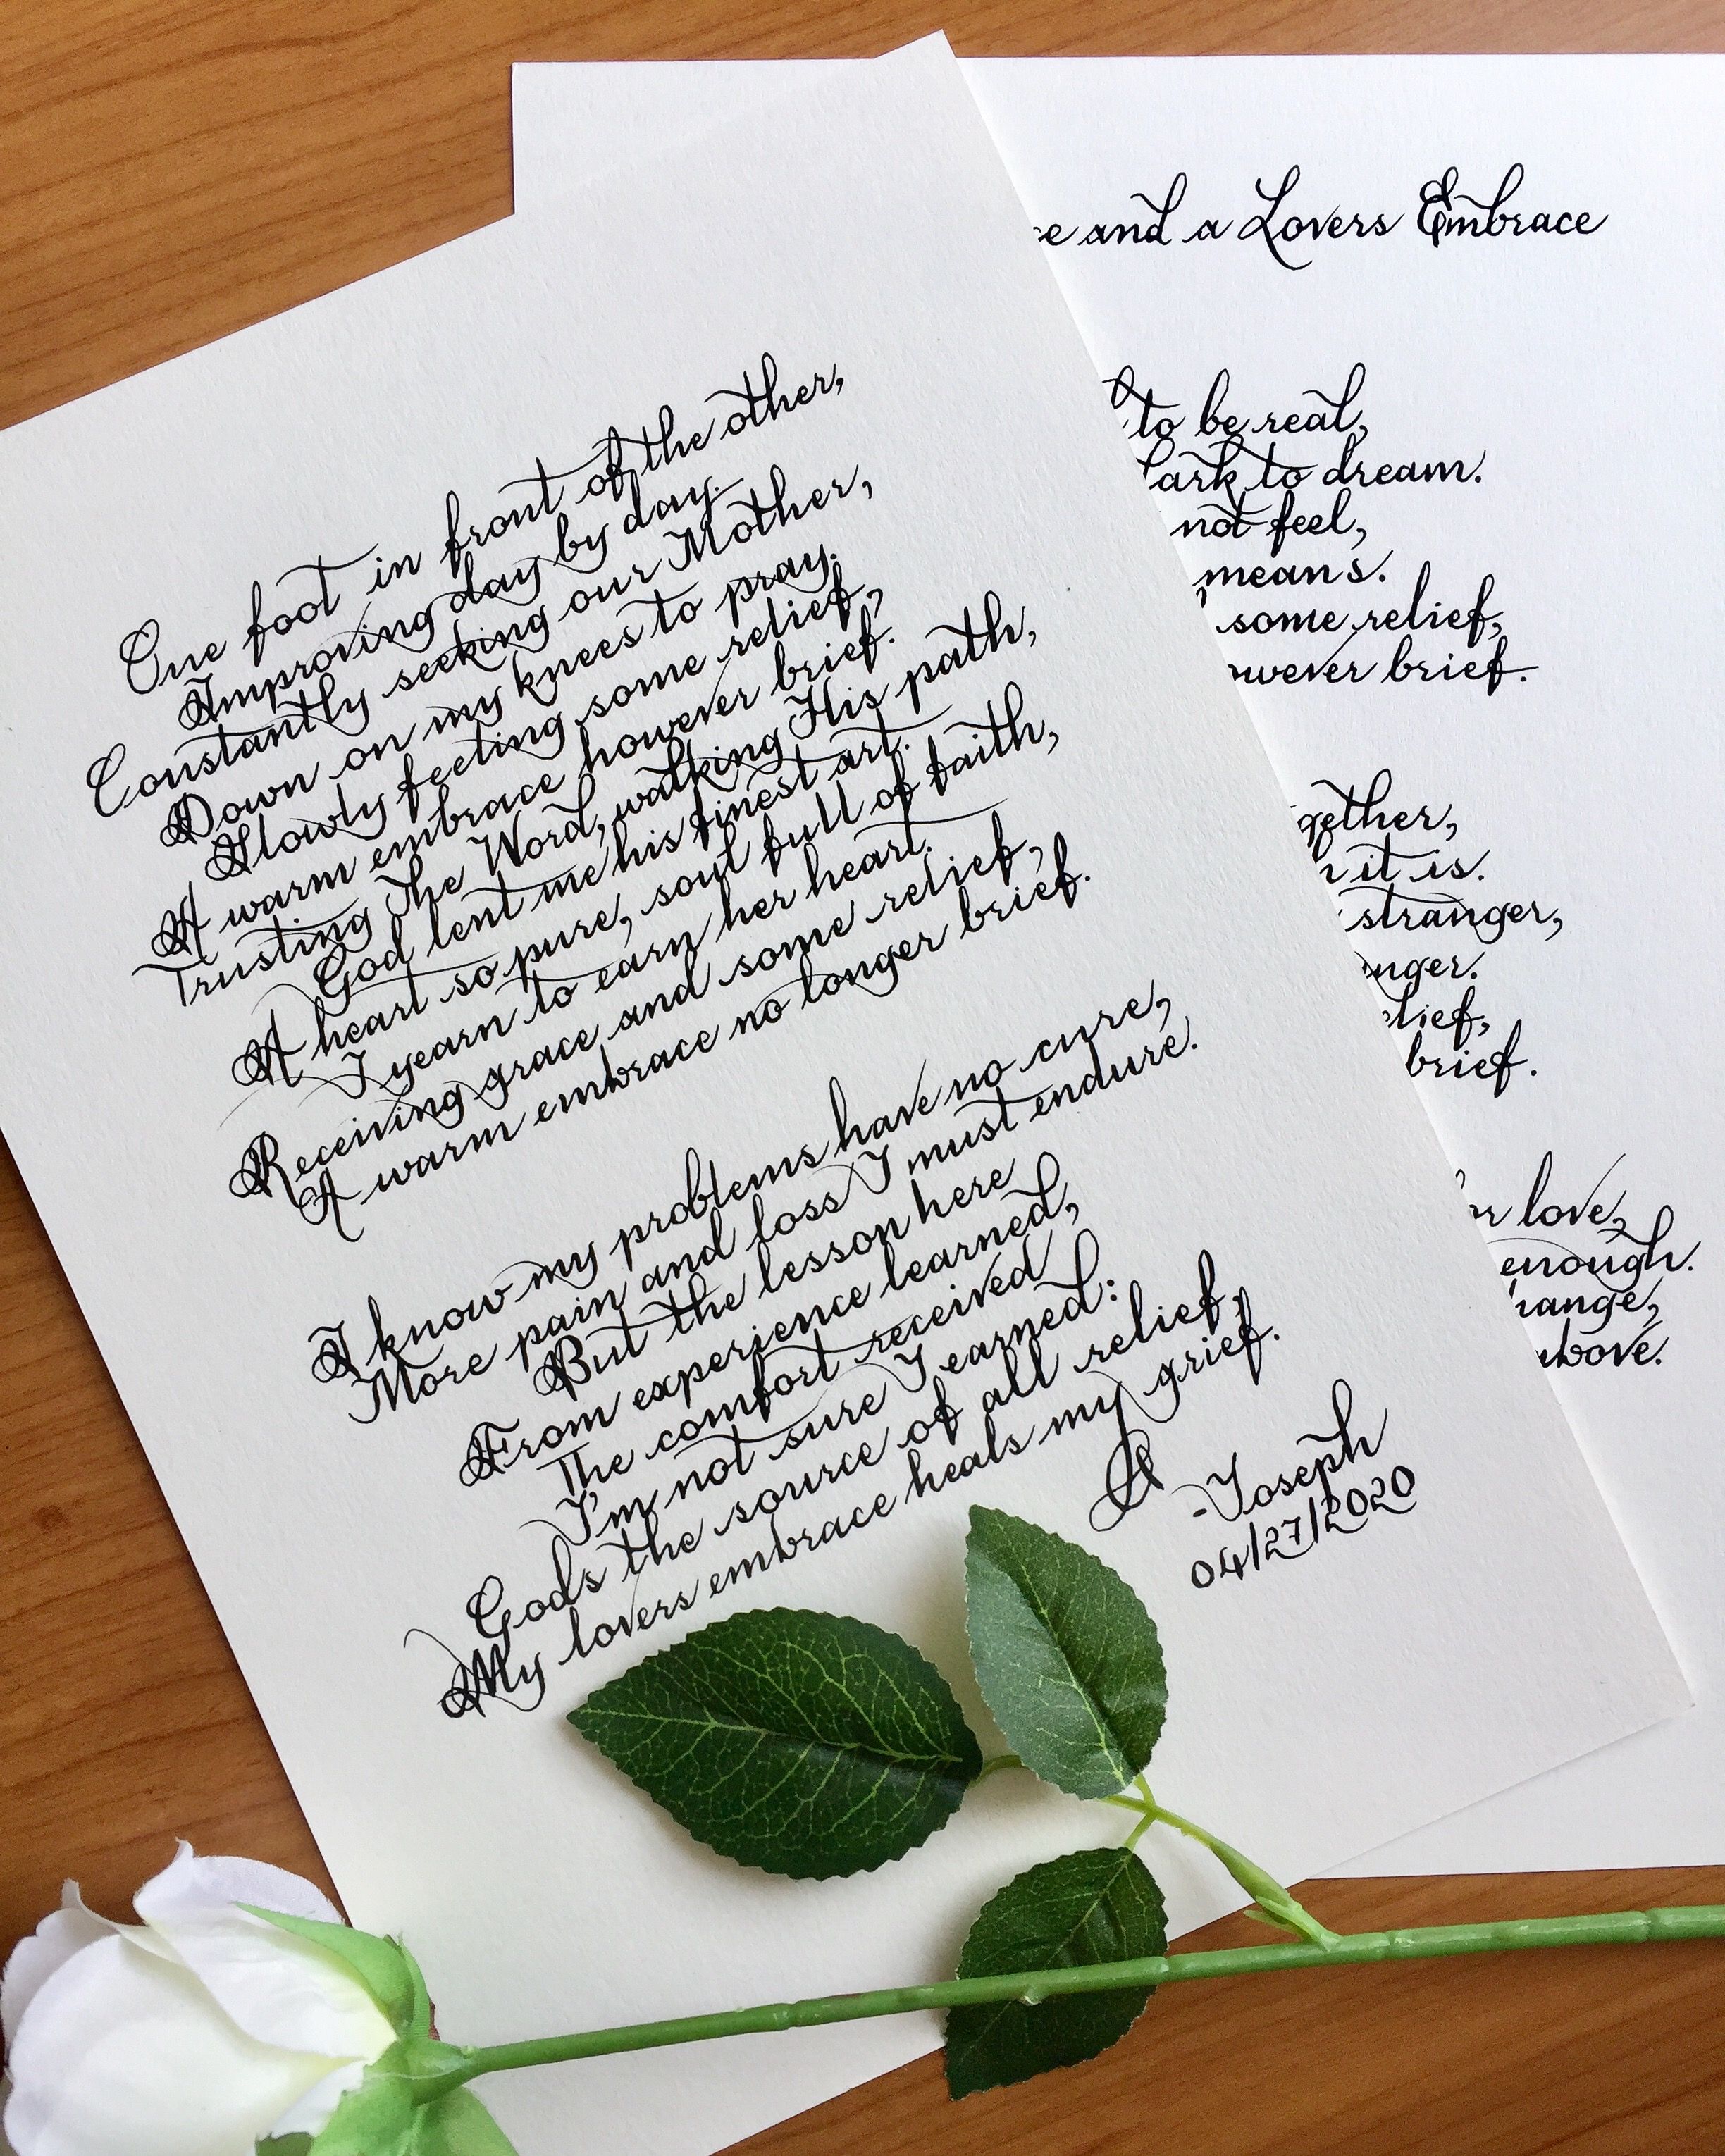 One foot in front of the other,
Improving day by day.
Constantly seeking our Mother,
Down on my knees to pray.
Slowly feeling some relief,
A warm embrace however brief.
Trusting The Word, walking His path,
God lent me his finest art.
A heart so pure, soul full of faith,
I yearn to earn her heart.
Receiving grace and some relief,
A warm embrace no longer brief.
I know my problems have no cure,
More pain and loss I must endure.
But the lesson here
From experience learned,
The comfort received
I'm not sure I earned:
Gods the source of all relief,
My lovers embrace heals my grief.
-Joseph
04/27/2020
e and a Lovers Embrace
to be real,
ark to dream.
not feel,
means.
some relief,
owever brief.
gether,
it is.
stranger,
nger.
lief,
brief.
or love,
enough.
hange,
above.